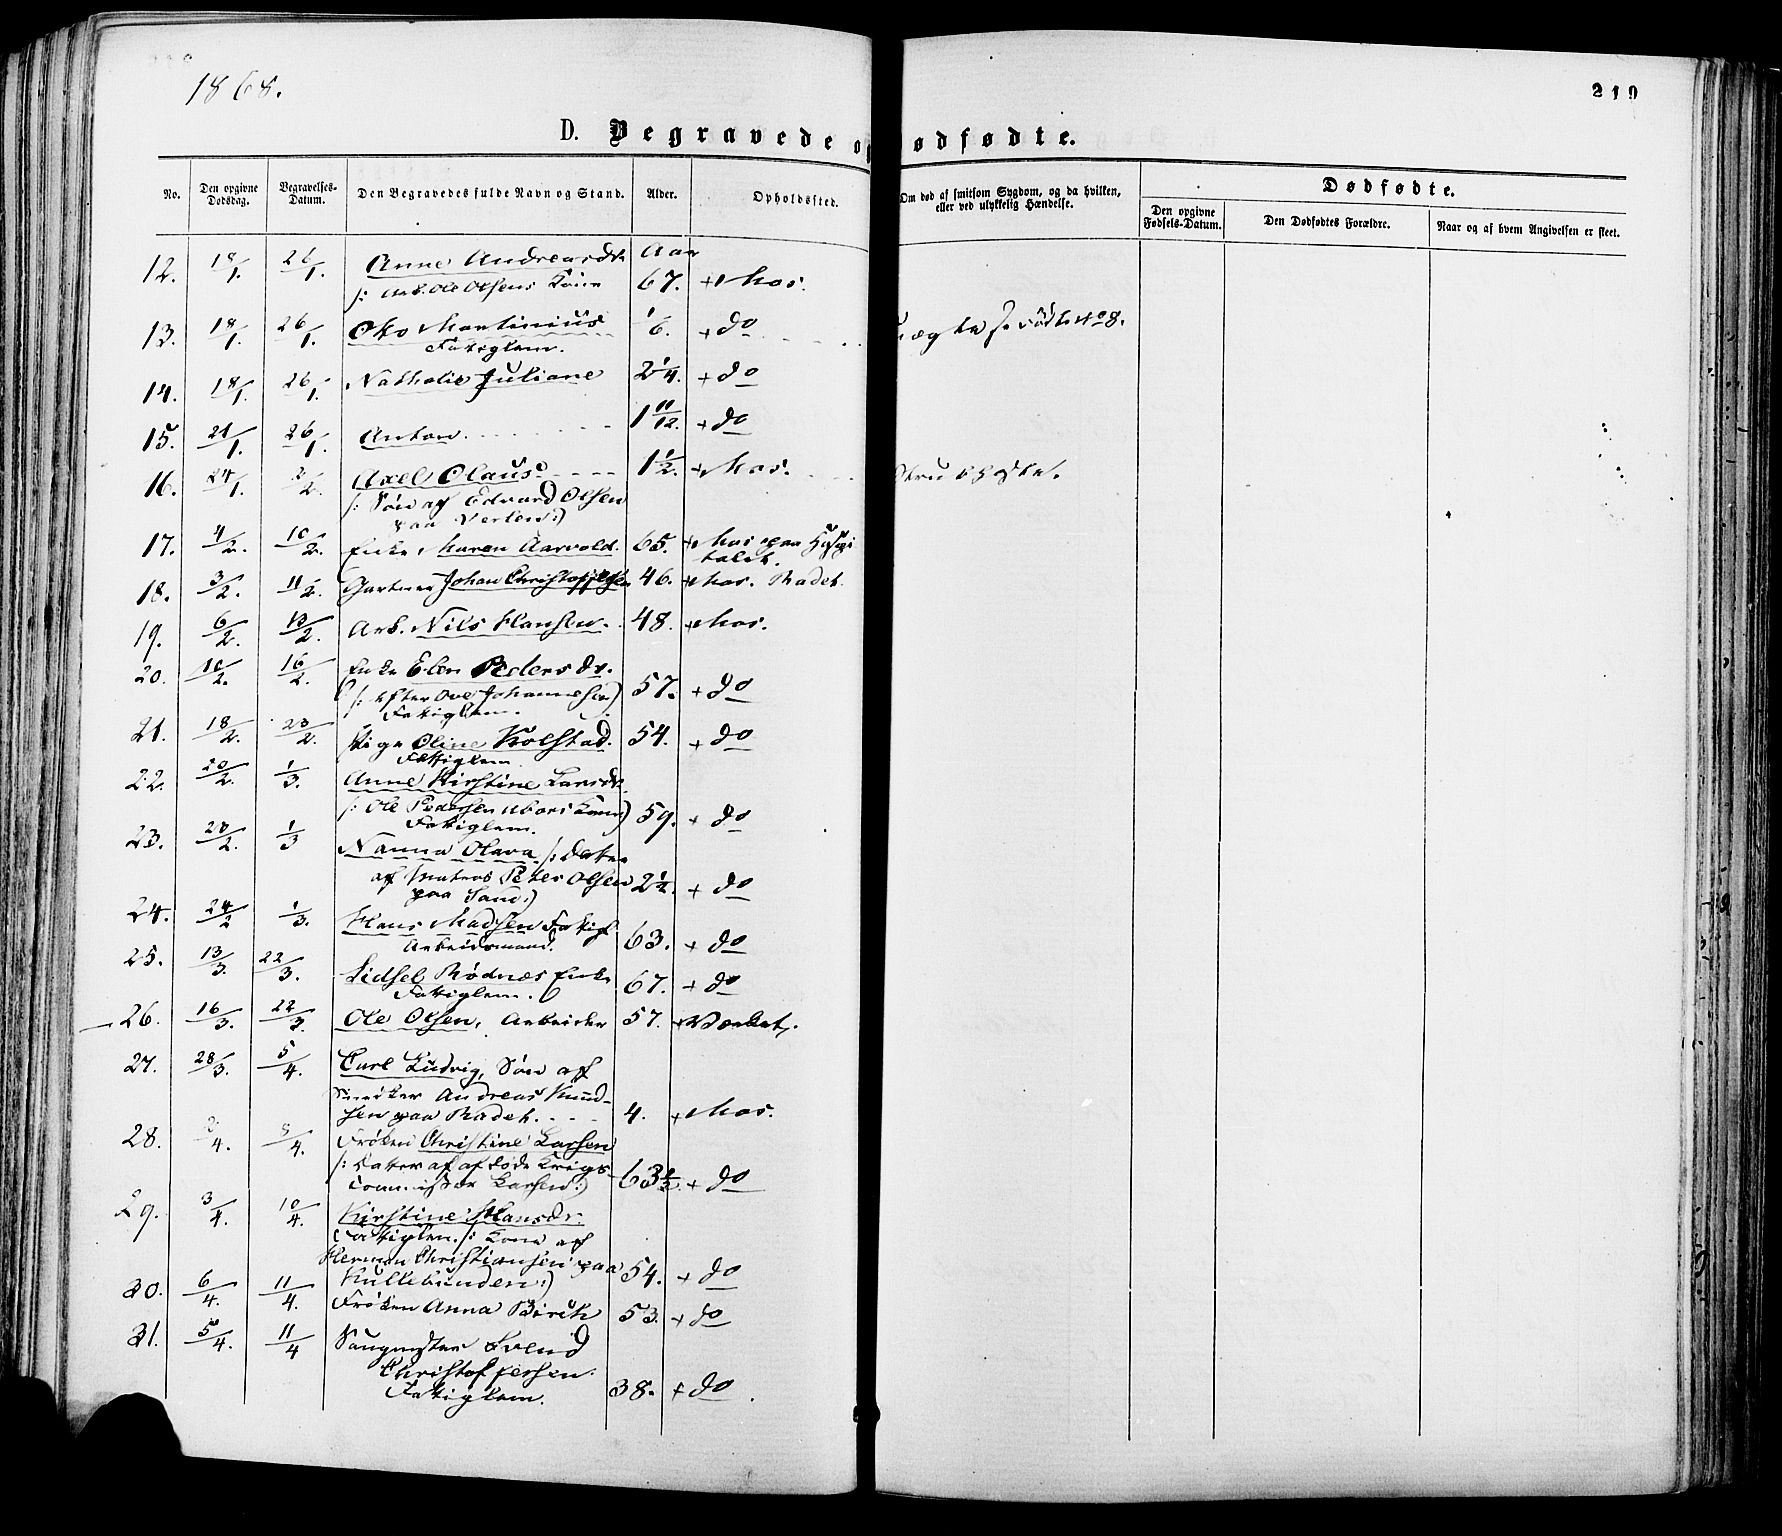 1868.
219
D. Begravede o
ødfødte.
No. Den opgivne Dødsdag. Begravelses-Datum. Den Begravedes fulde Navn og Stand. Alder. Opholdssted.
Om død af smitsom Sygdom, og da hvilken, eller ved ulykkelig Hændelse.
Dødfødte.
Den opgivne Fødsels-Datum. Den Dødfødtes Forældre. Naar og af hvem Angivelsen er skeet.
12. 18/1. 26/1. Anne Andreasdr. Aar
/: Arb. Ole Olsens Kone 67. + Mos.
13. 18/1. 26/1. Martinius 1/6. + do
Fattiglem.
uægte
No 8.
14. 18/1. 26/1. Nathalie Juliane 2 1/4. + do
15. 21/1. 26/1. Anton 1 11/12. + do
16. 24/1. 2/2. Axel Olaus 1 1/2. + Mos.
/: Søn af Edvard Olsen
paa Verlen :)
Strubehoste.
17. 4/2. 10/2. Enke Maren Aarvold. 65. + Mos paa Hospi
talet.
18. 3/2. 11/2. Gartner Johan Christoffersen 46. + Mos. Radet.
19. 6/2. 13/2. Arb. Nils Hansen. 48. + Mos.
20. 10/2. 16/2. Enke Elen Pedersdr.
/: efter Ole Johannesen) 57. + do
Fattiglem.
21. 18/2. 23/2. Pige Oline Kolstad. 54. + do
Fattiglem.
22. 20/2. 1/3. Anne Kirstine Larsdr.
/: Ole Pedersen Kone) 59. + do
Fattiglem.
23. 23/2. 1/3 Nanna Olava /: Datter
af Matros Peter Olsen 2 1/2. + do
paa Sand :)
24. 24/2 1/3. Hans Madsen Fattigl.
Arbeidsmand. 63. + do
25. 13/3. 22/3. Sidsel Rødnæs Enke 67. + do
Fattiglem.
26. 16/3. 22/3. Ole Olsen, Arbeider 57. + Værket.
27. 28/3. 5/4. Carl Ludvig, Søn af
Snedker Andreas Knud-
sen paa Radet. 4. + Mos.
28. 2/4. 8/4. Frøken Christine Larsen
/: Datter af afdøde Krigs-
commissær Larsen :) 63 1/2. + do
29. 3/4. 10/4. Kirstine Hansdr.
Fattiglem. /: Kone af
Herman Christiansen paa
Kullebunden :) 54. + do
30. 6/4. 11/4. Frøken Anna Birch 53. + do
31. 5/4. 11/4 Saugmester Svend
Christoffersen.
Fattiglem. 38. + do